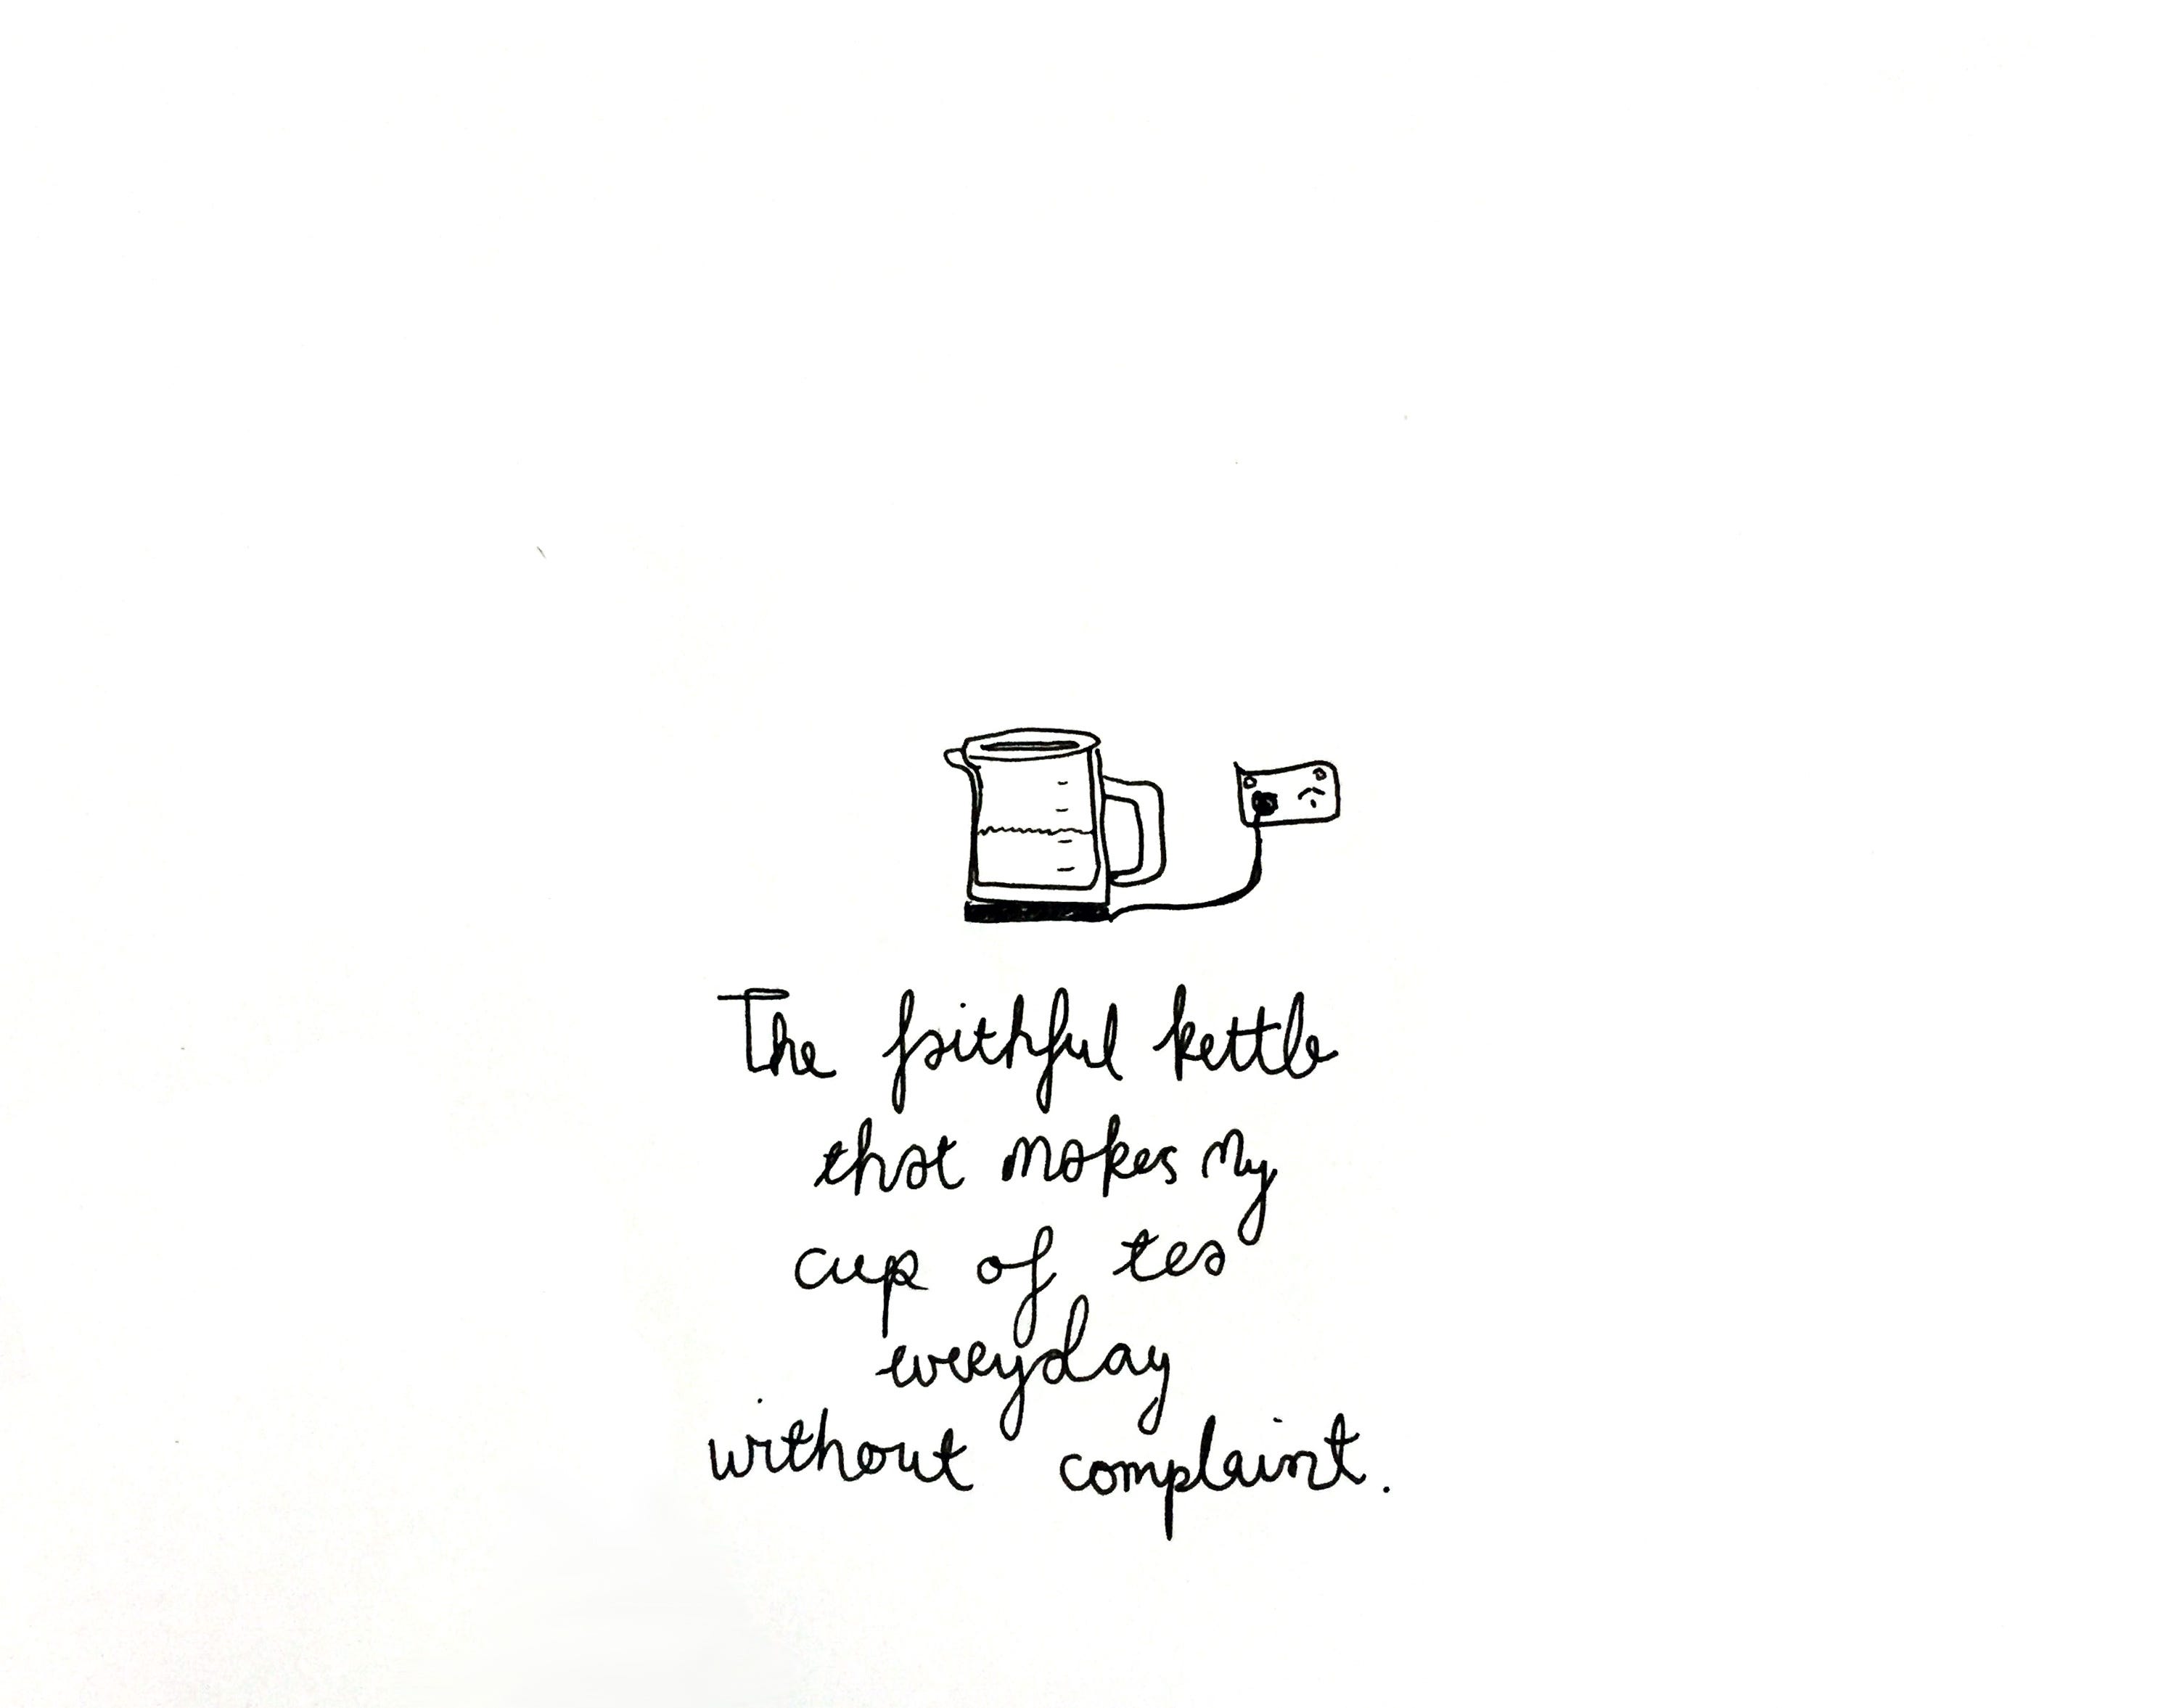 The faithful kettle
that makes my
cup of tea
everyday
without complaint.